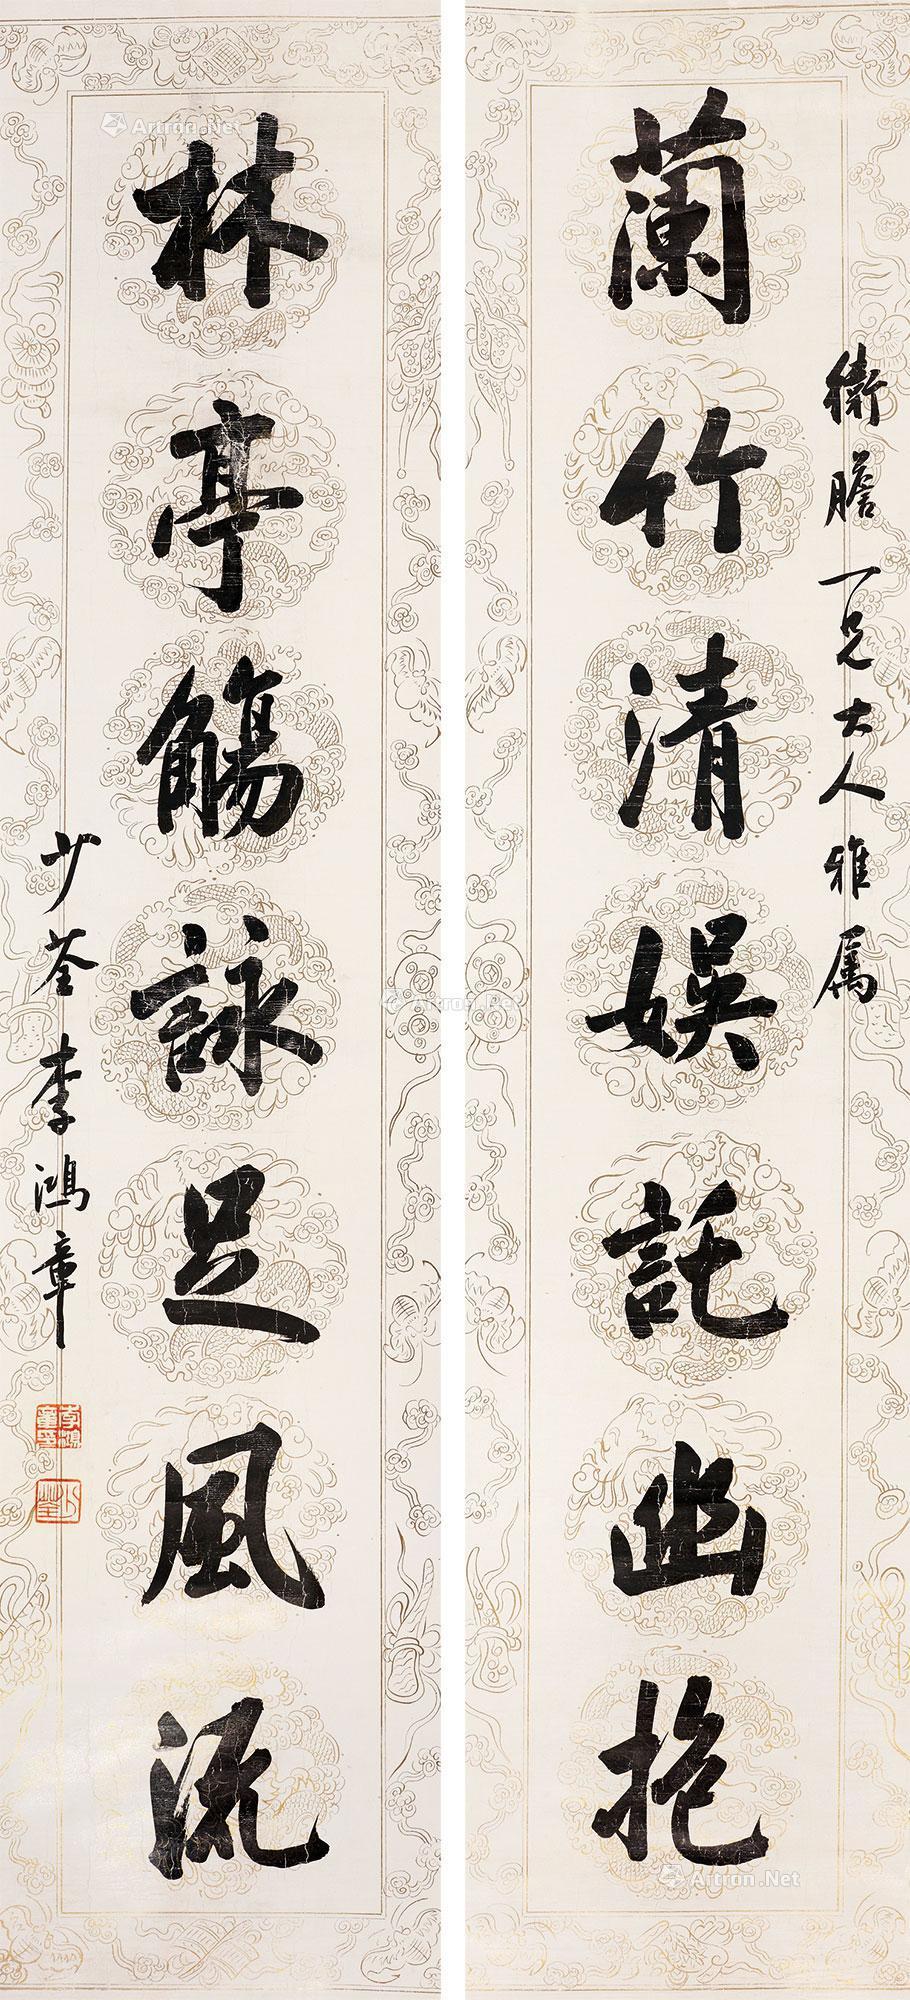 衡瞻一兄大人雅属
蘭竹清娛託幽抱
林亭觴詠足風流
少荃李鴻章
李鴻章印
少荃
Artron.Net
Artron.Net
Artron.Net